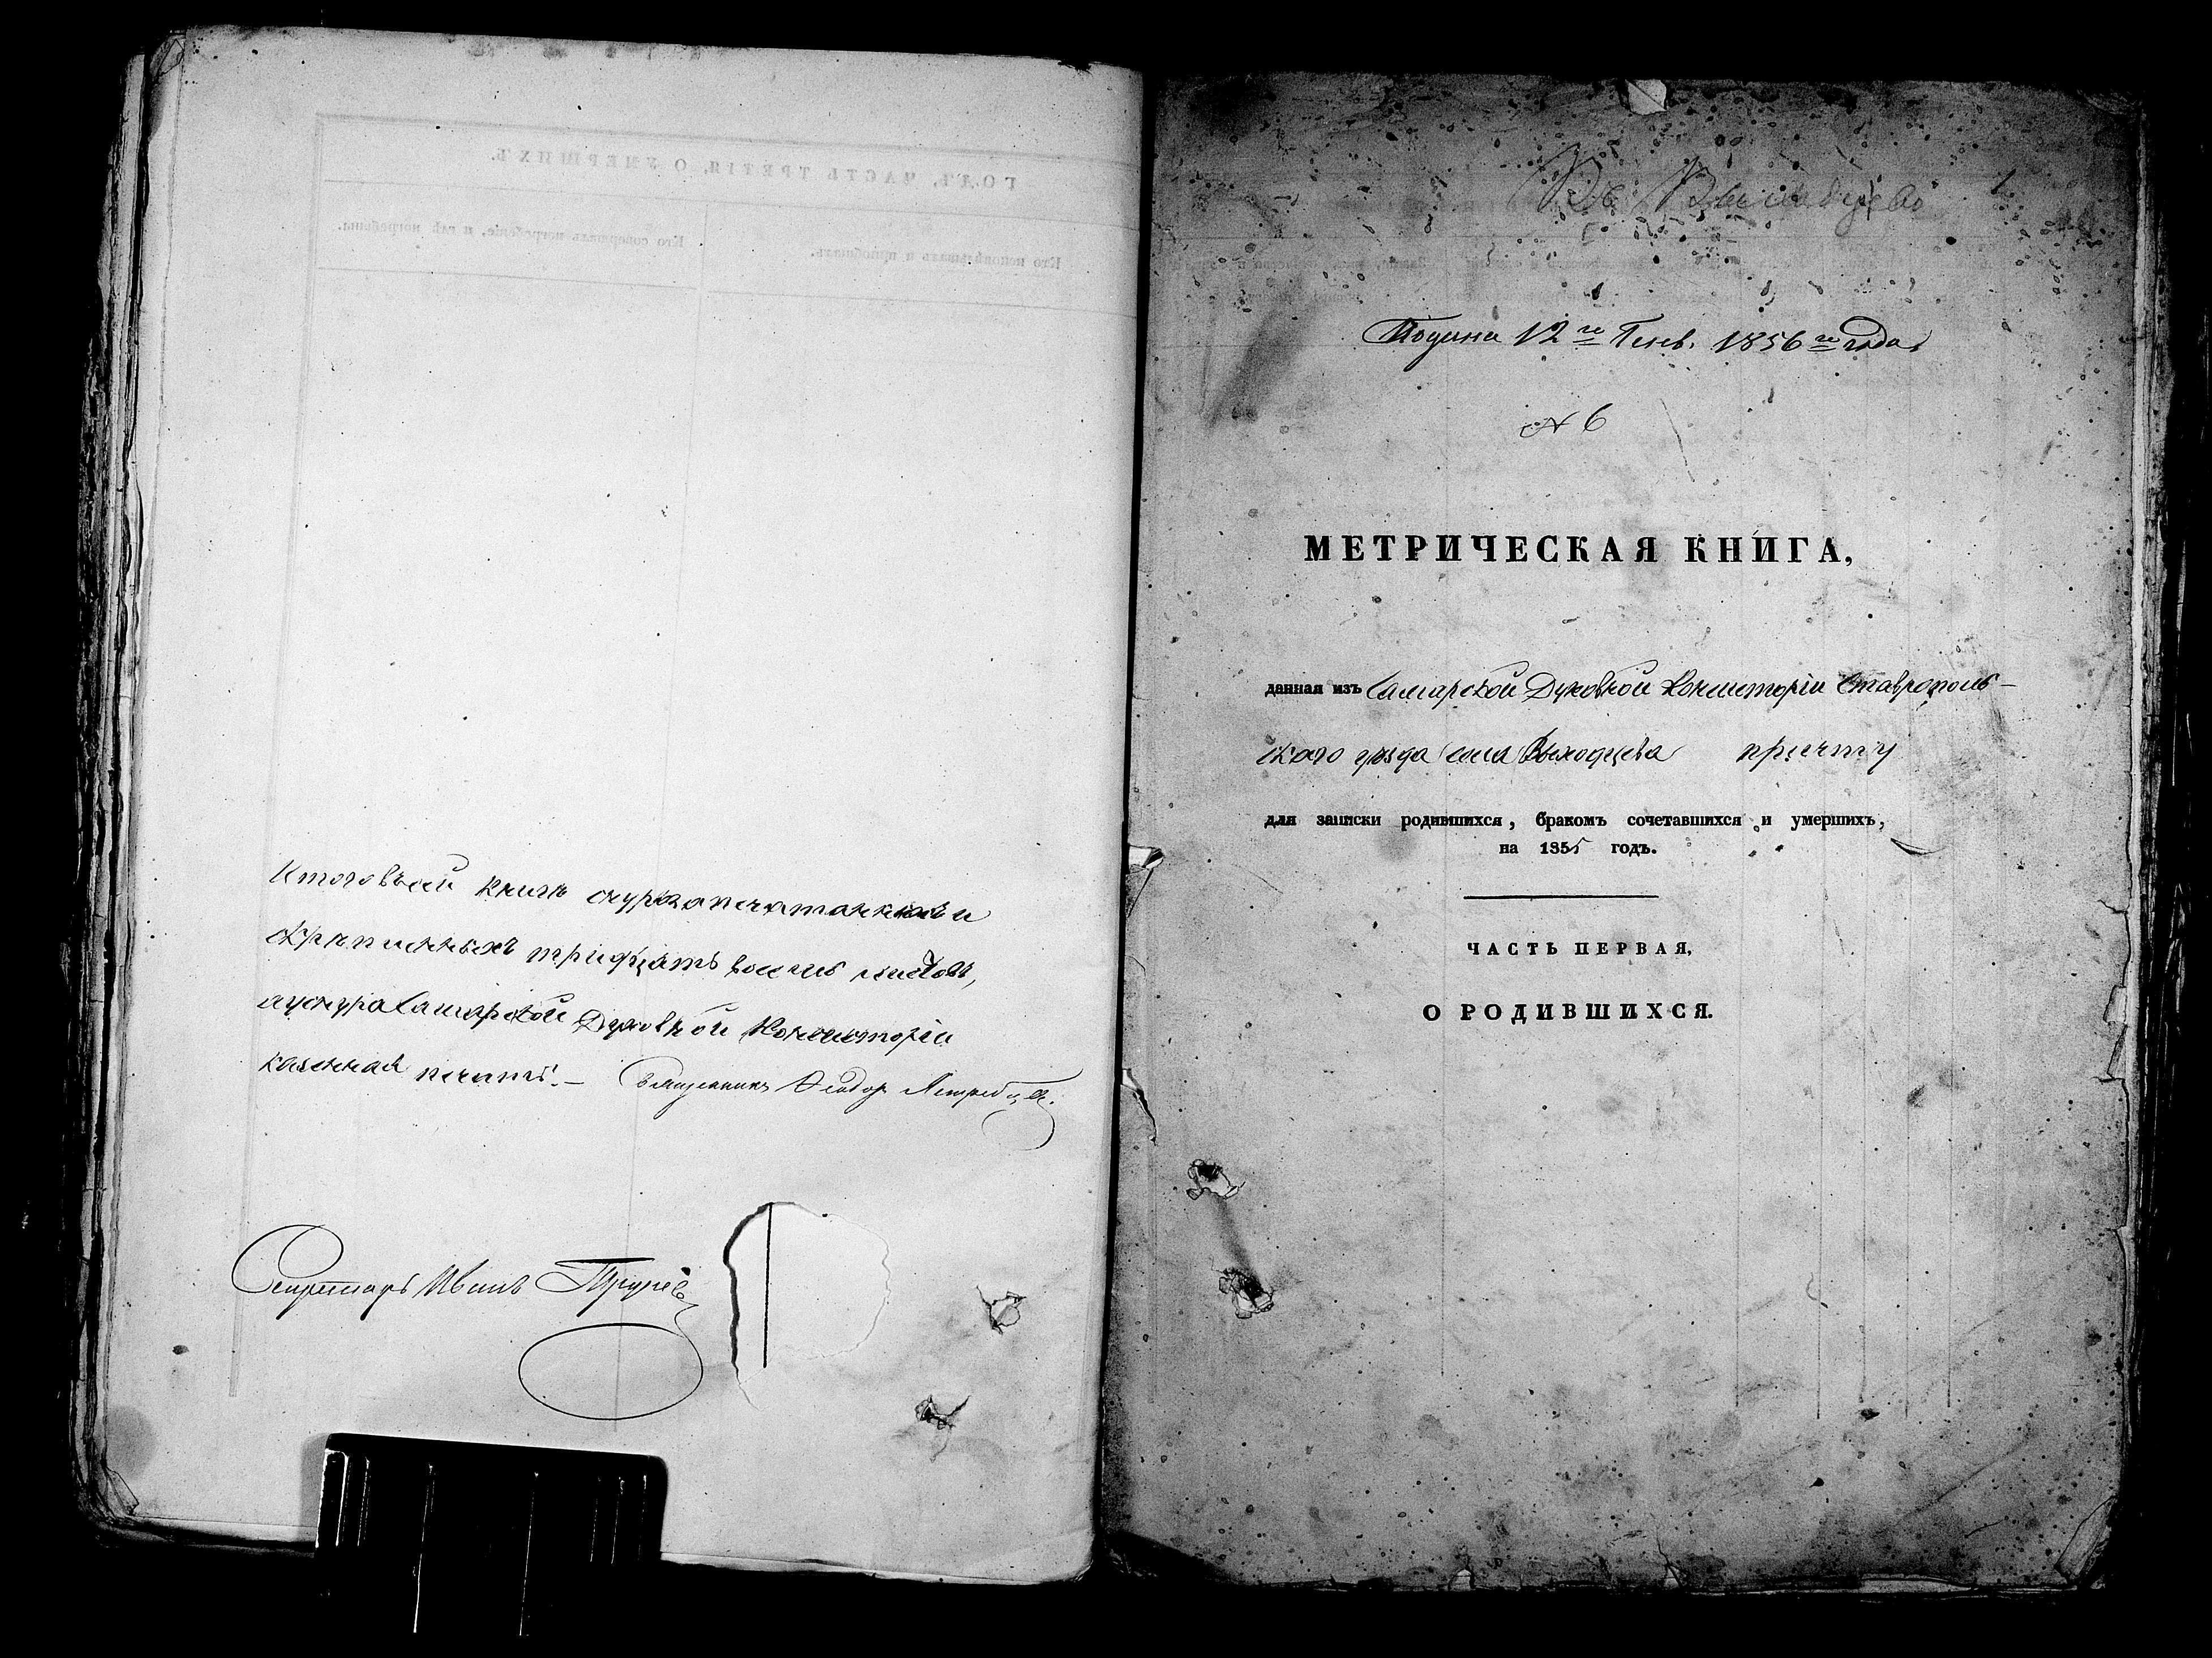 ГОДЪ, ЧАСТЬ ТРЕТІЯ, О УМЕРШИХЪ.
Кто исповѣдывалъ и пріобщалъ.
Кто совершалъ погребеніе, и гдѣ погребены.
Итого въсей книгѣ шнурозапечатанныхъ и
скрѣпленныхъ тридцать восемь листовъ,
аушнура Самарской Духовной Консисторіи
казенная печать. — Священникъ Ѳеодоръ Ястребцевъ.
Секретарь Иванъ
1
Подана 12го Генв. 1856го года
№ 6
МЕТРИЧЕСКАЯ КНИГА,
данная изъ Самарской Духовной Консисторіи Ставрополь-
скаго уѣзда села Выходцева причту
для записки родившихся, бракомъ сочетавшихся и умершихъ,
на 1855 годъ.
ЧАСТЬ ПЕРВАЯ,
О РОДИВШИХСЯ.